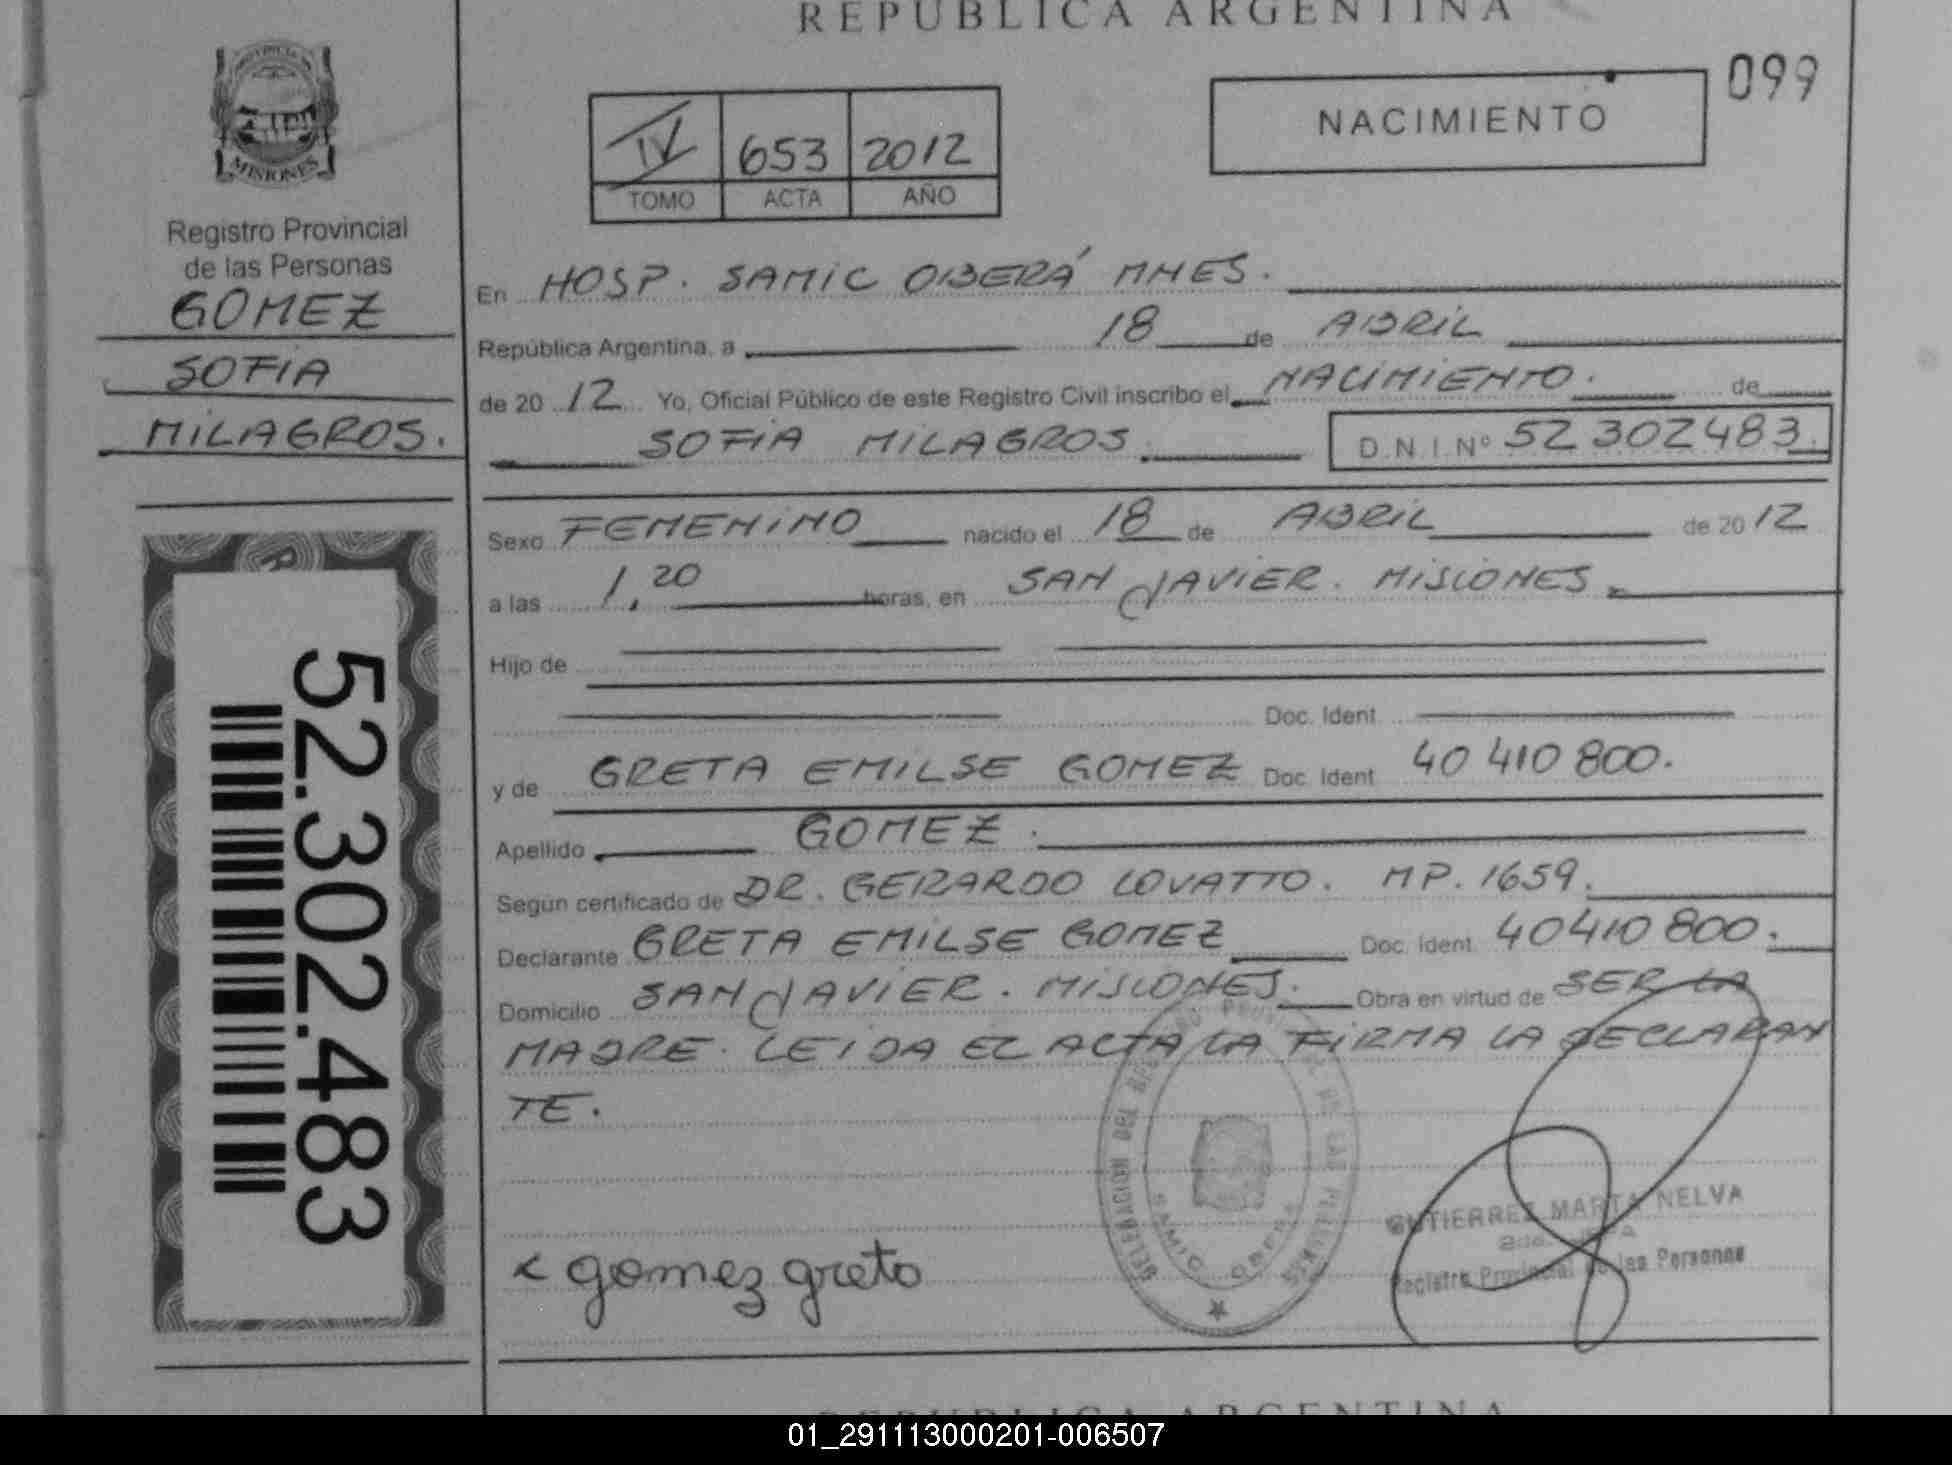 REPUBLICA ARGENTINA
099
MISIONES
Registro Provincial
de las Personas
GOMEZ
SOFIA
MILAGROS.
52.302.483
IV 653 2012
TOMO ACTA AÑO
NACIMIENTO
En HOSP. SAMIC OBERÁ MNES.
República Argentina, a 18 de ABRIL
de 20 12 Yo, Oficial Público de este Registro Civil inscribo el NACIMIENTO. de
SOFIA MILAGROS. D.N.I. Nº 52 302483.
Sexo FEMENINO nacido el 18 de ABRIL de 20 12
a las 1,20 horas, en SAN JAVIER. MISIONES
Hijo de
Doc. Ident.
y de GRETA EMILSE GOMEZ Doc. Ident. 40 410 800.
Apellido GOMEZ.
Según certificado de DR. GERARDO LOVATTO. MP. 1659.
Declarante GRETA EMILSE GOMEZ Doc. Ident. 40410 800.
Domicilio SAN JAVIER. MISIONES. Obra en virtud de SER LA
MADRE. LEIDA EL ACTA LA FIRMA LA DECLARAN
TE.
DELEGACION DEL REGISTRO PROVINCIAL DE LAS PERSONAS
SAMIC OBERA
GUTIERREZ MARTA NELVA
Registro Provincial de las Personas
x gomez greta
REPUBLICA ARGENTINA
01_291113000201-006507